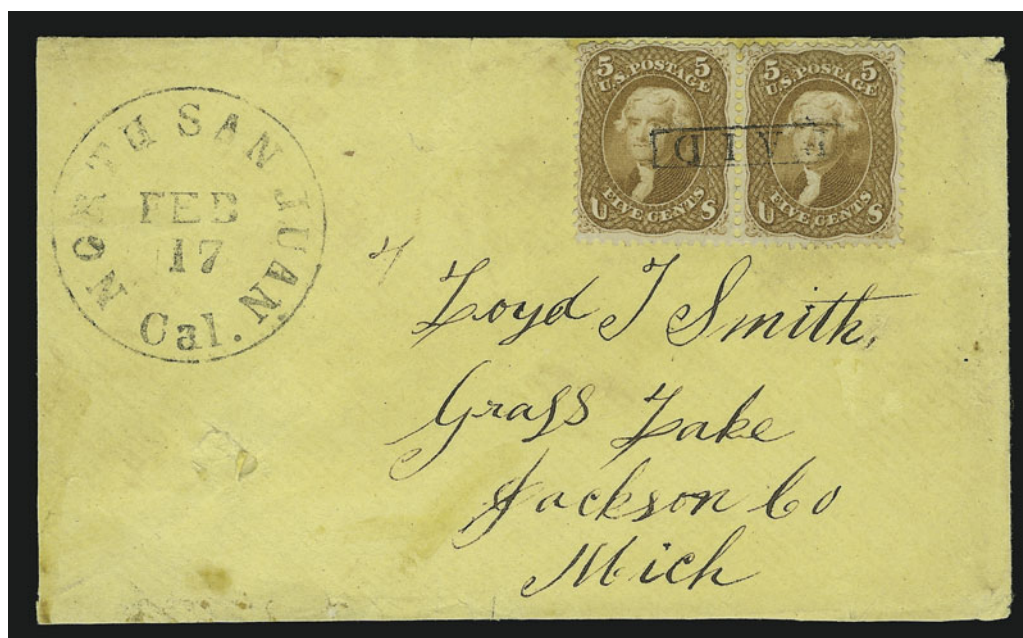 NORTH SAN JUAN
FEB
17
Cal.
5 5
U.S. POSTAGE
U FIVE CENTS S
5 5
U.S. POSTAGE
U FIVE CENTS S
PAID
Loyd T Smith,
Grass Lake
Jackson Co
Mich